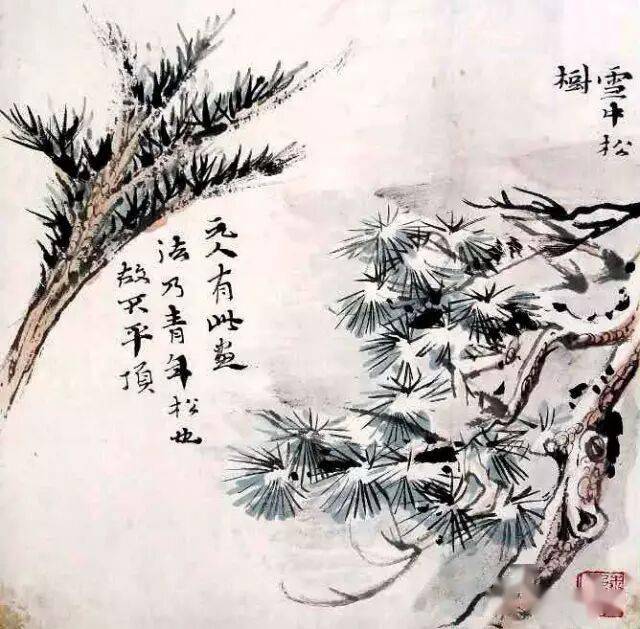 雪中松
樹
元人有此畫
法乃青年松也
故无平頂